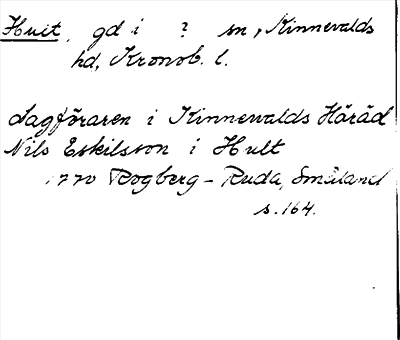 Hult, gd i ? sn, Kinnevalds
hd, Kronob. l.
Lagföraren i Kinnevalds Häräd
Nils Eskilsson i Hult
1770 Rogberg - Ruda, Småland
s. 164.